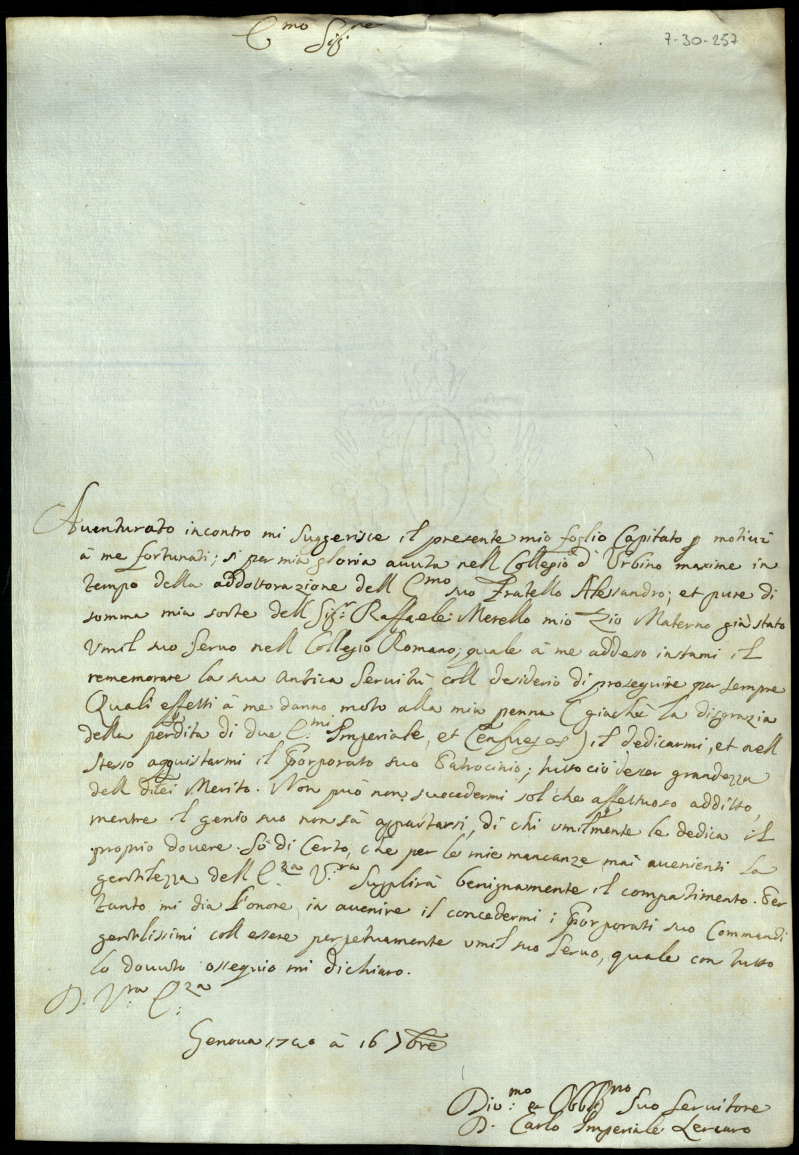 E.mo Sig.re
7-30-257
Auenturato incontro mi suggerisce il presente mio foglio Capitato p motiui
à me fortunati; si per mia gloria auuta nell Collegio d'Urbino maxime in
tempo della addottorazione dell E.mo suo Fratello Alessandro; et pure di
somma mia sorte dell Sig.r Raffaele Merello mio Zio Materno già stato
Vmil suo seruo nell Collegio Romano; quale à me addesso instami il
rememorare la sua Antica Seruitù coll desiderio di proseguire per sempre
Quali effetti à me danno moto alla mia penna (giachè la disgrazia
della perdita di due E.mi Imperiale, et Cenfuegos) il dedicarmi, et nell
stesso acquistarmi il Porporato suo Patrocinio; tutto ciò grandezza
dell di lei Merito. Non può non succedermi sol che affettuoso additto,
mentre il genio suo non sà appartarsi di chi vmilmente le dedica il
proprio douere. Sò di Certo, che per le mie mancanze mai auenienti la
gentilezza dell E.za V.ra supplirà benignamente il compatimento. Per
tanto mi dia l'onore in auenire il concedermi i Porporati suo Commandi
gentilissimi coll essere perpetuamente vmil suo seruo, quale con tutto
lo douuto ossequio mi dichiaro.
D. V.ra E.za
Genoua 1740 à 16 7bre
Diu.mo et Obbl.mo Suo Seruitore
D. Carlo Imperiale Lercaro